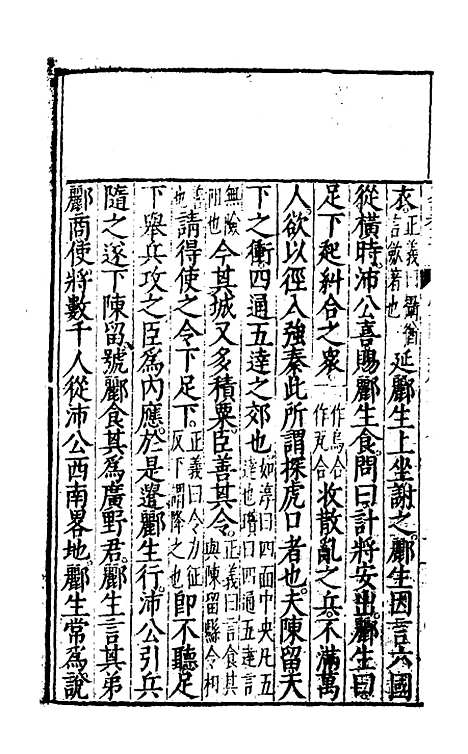 衣正義曰攝猶言斂著也延酈生上坐謝之酈生因言六國
從橫時沛公喜賜酈生食問曰計將安出酈生曰
足下起糾合之衆一作烏合一作瓦合收散亂之兵不滿萬
人欲以徑入強秦此所謂探虎口者也夫陳留天
下之衝四通五達之郊也如淳曰四面中央凡五達也瓚曰四通五達言
無險阻也今其城又多積粟臣善其令正義曰言食其與陳留縣令相
善也請得使之令下足下正義曰令力征反下謂降之也即不聽足
下舉兵攻之臣爲內應於是遣酈生行沛公引兵
隨之遂下陳留號酈食其爲廣野君酈生言其弟
酈商使將數千人從沛公西南畧地酈生常爲說